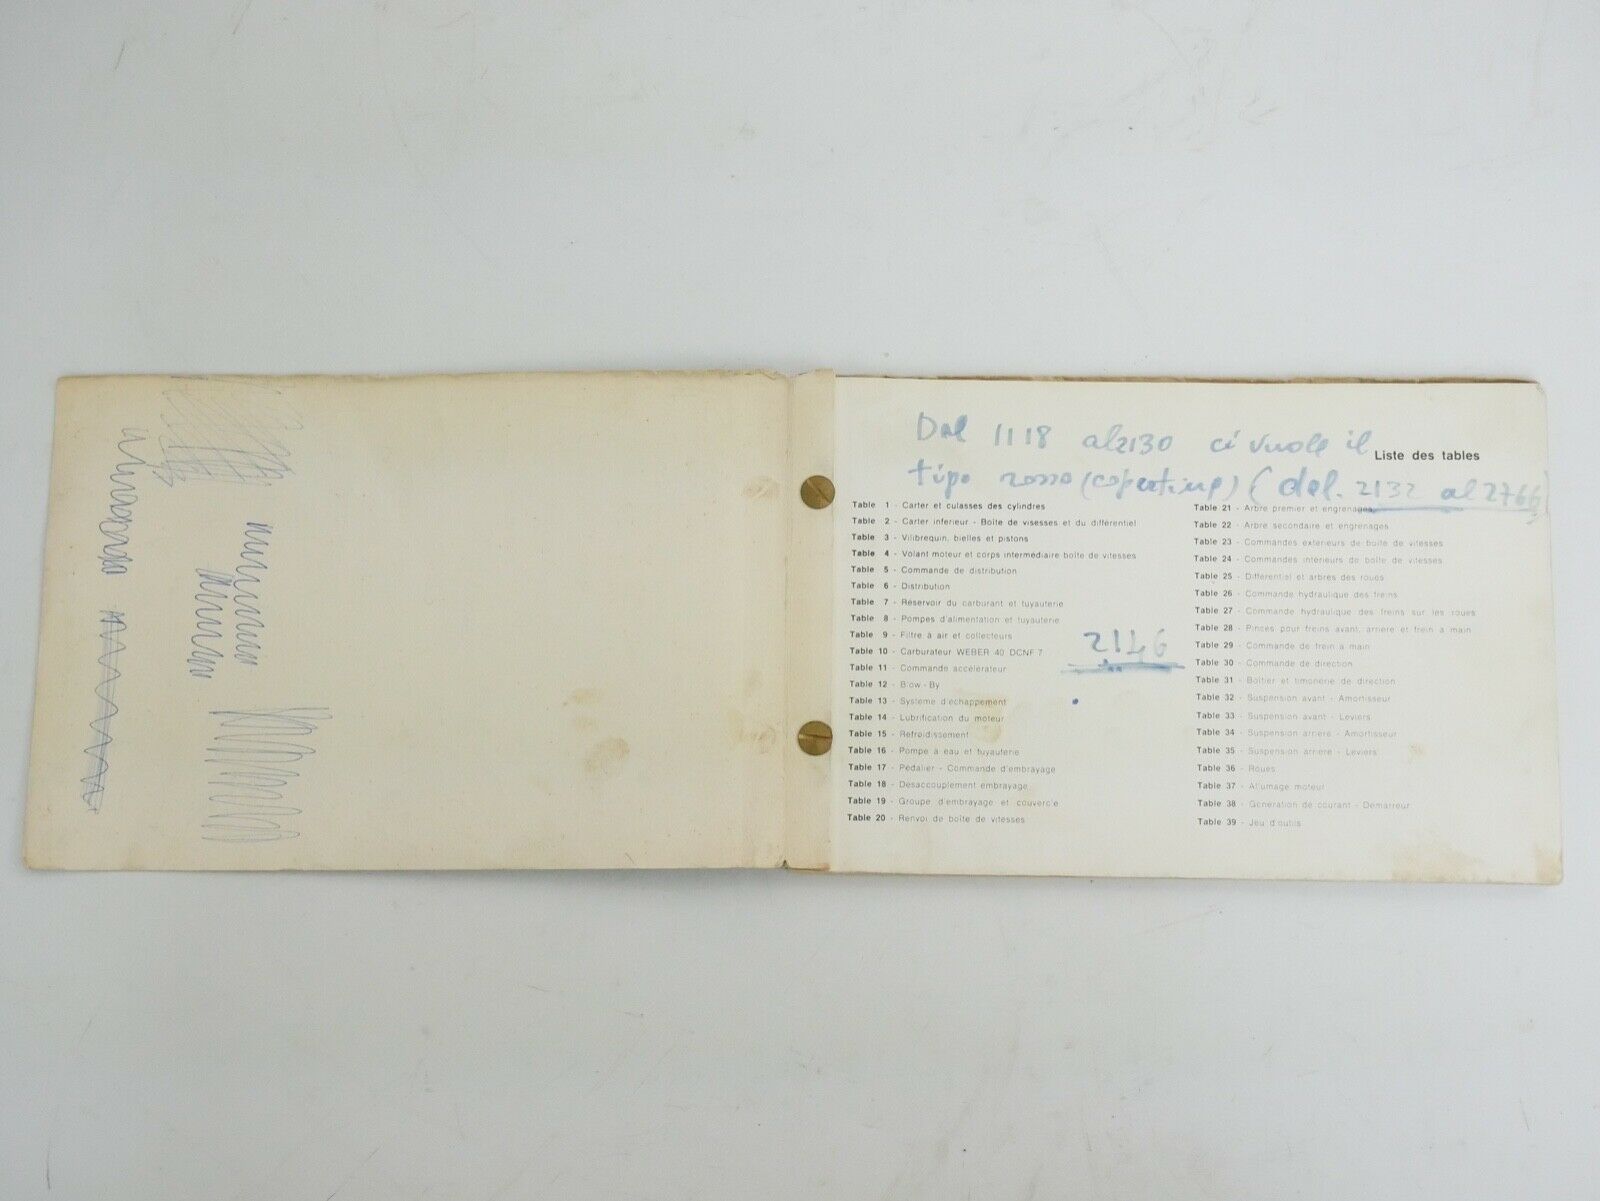 Dal 1118 al 2130 ci vuole il
tipo rosso (copertina) (dal. 2132 al 2766)
Liste des tables
Table 1 - Carter et culasses des cylindres
Table 2 - Carter inferieur - Boîte de visesses et du différentiel
Table 3 - Vilibrequin, bielles et pistons
Table 4 - Volant moteur et corps intermédiaire boîte de vitesses
Table 5 - Commande de distribution
Table 6 - Distribution
Table 7 - Réservoir du carburant et tuyauterie
Table 8 - Pompes d'alimentation et tuyauterie
Table 9 - Filtre à air et collecteurs
Table 10 - Carburateur WEBER 40 DCNF 7
Table 11 - Commande accélérateur
Table 12 - Blow-By
Table 13 - Système d'échappement
Table 14 - Lubrification du moteur
Table 15 - Refroidissement
Table 16 - Pompe à eau et tuyauterie
Table 17 - Pédalier - Commande d'embrayage
Table 18 - Désaccouplement embrayage
Table 19 - Groupe d'embrayage et couvercle
Table 20 - Renvoi de boîte de vitesses
2146
Table 21 - Arbre premier et engrenages
Table 22 - Arbre secondaire et engrenages
Table 23 - Commandes extérieurs de boîte de vitesses
Table 24 - Commandes intérieurs de boîte de vitesses
Table 25 - Différentiel et arbres des roues
Table 26 - Commande hydraulique des freins
Table 27 - Commande hydraulique des freins sur les roues
Table 28 - Pinces pour freins avant, arrière et frein à main
Table 29 - Commande de frein à main
Table 30 - Commande de direction
Table 31 - Boîtier et timonerie de direction
Table 32 - Suspension avant - Amortisseur
Table 33 - Suspension avant - Leviers
Table 34 - Suspension arrière - Amortisseur
Table 35 - Suspension arrière - Leviers
Table 36 - Roues
Table 37 - Allumage moteur
Table 38 - Génération de courant - Démarreur
Table 39 - Jeu d'outils